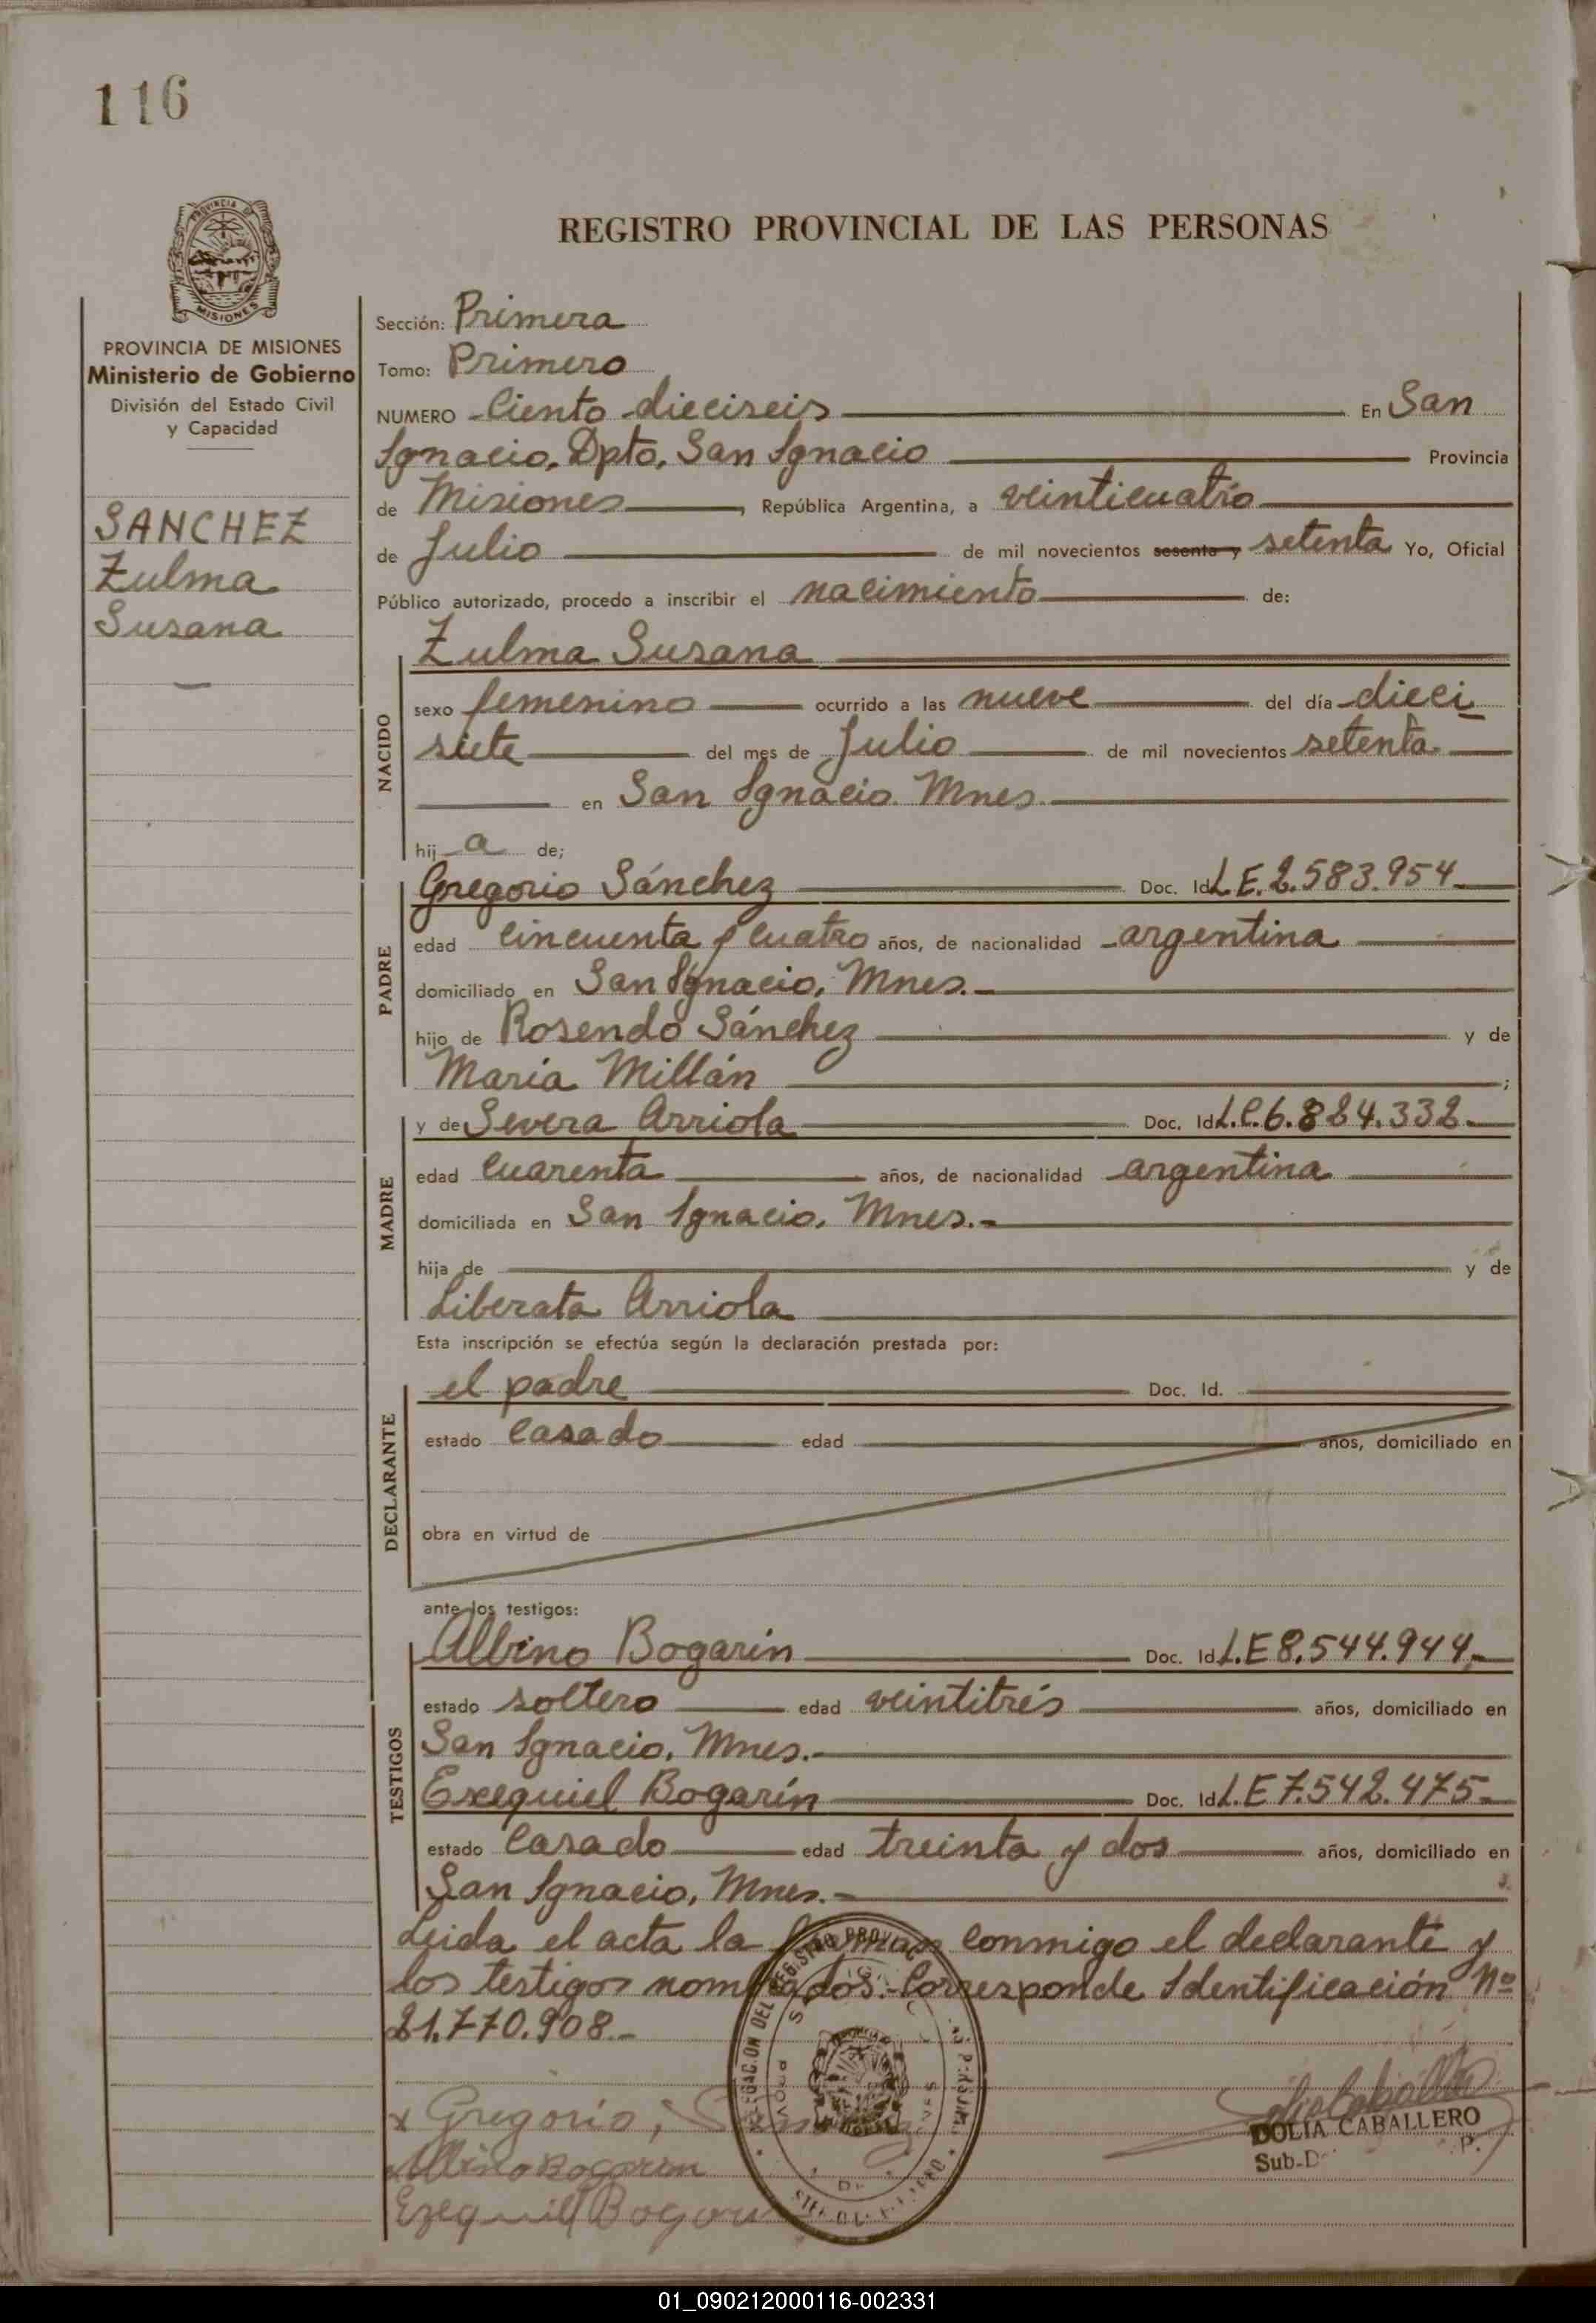 116
PROVINCIA DE
MISIONES
REGISTRO PROVINCIAL DE LAS PERSONAS
PROVINCIA DE MISIONES
Ministerio de Gobierno
División del Estado Civil
y Capacidad
SANCHEZ
Zulma
Susana
Sección: Primera
Tomo: Primero
NUMERO Ciento dieciseis En San
Ignacio, Dpto, San Ignacio Provincia
de Misiones, República Argentina, a veinticuatro
de Julio de mil novecientos sesenta y setenta Yo, Oficial
Público autorizado, procedo a inscribir el nacimiento de:
NACIDO
Zulma Susana
sexo femenino ocurrido a las nueve del día dieci
siete del mes de Julio de mil novecientos setenta
en San Ignacio. Mnes.
hij a de;
PADRE
Gregorio Sánchez Doc. Id L.E. 2.583.954
edad cincuenta y cuatro años, de nacionalidad argentina
domiciliado en San Ignacio, Mnes.-
hijo de Rosendo Sánchez y de
María Millán ;
MADRE
y de Severa Arriola Doc. Id L.C. 6.824.332-
edad cuarenta años, de nacionalidad argentina
domiciliada en San Ignacio, Mnes.-
hija de y de
Liberata Arriola
Esta inscripción se efectúa según la declaración prestada por:
DECLARANTE
el padre Doc. Id.
estado casado edad años, domiciliado en
obra en virtud de
ante los testigos:
TESTIGOS
Albino Bogarín Doc. Id L.E 8.544.944.-
estado soltero edad veintitrés años, domiciliado en
San Ignacio, Mnes.-
Exequiel Bogarín Doc. Id L.E 7.542.475-
estado casado edad treinta y dos años, domiciliado en
San Ignacio, Mnes.-
Leida el acta la firman conmigo el declarante y
los testigos nombrados.- Corresponde Identificación Nº
21.770.908.-
x Gregorio, Sanchez
Albino Bogarin
Ezequiel Bogarin
DOLIA CABALLERO
Sub-D P.
01_090212000116-002331